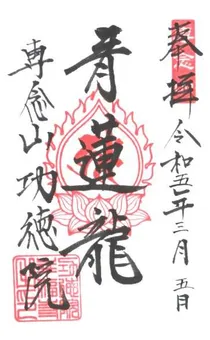 奉拝
令和五年三月五日
青蓮龍
専念山功徳院